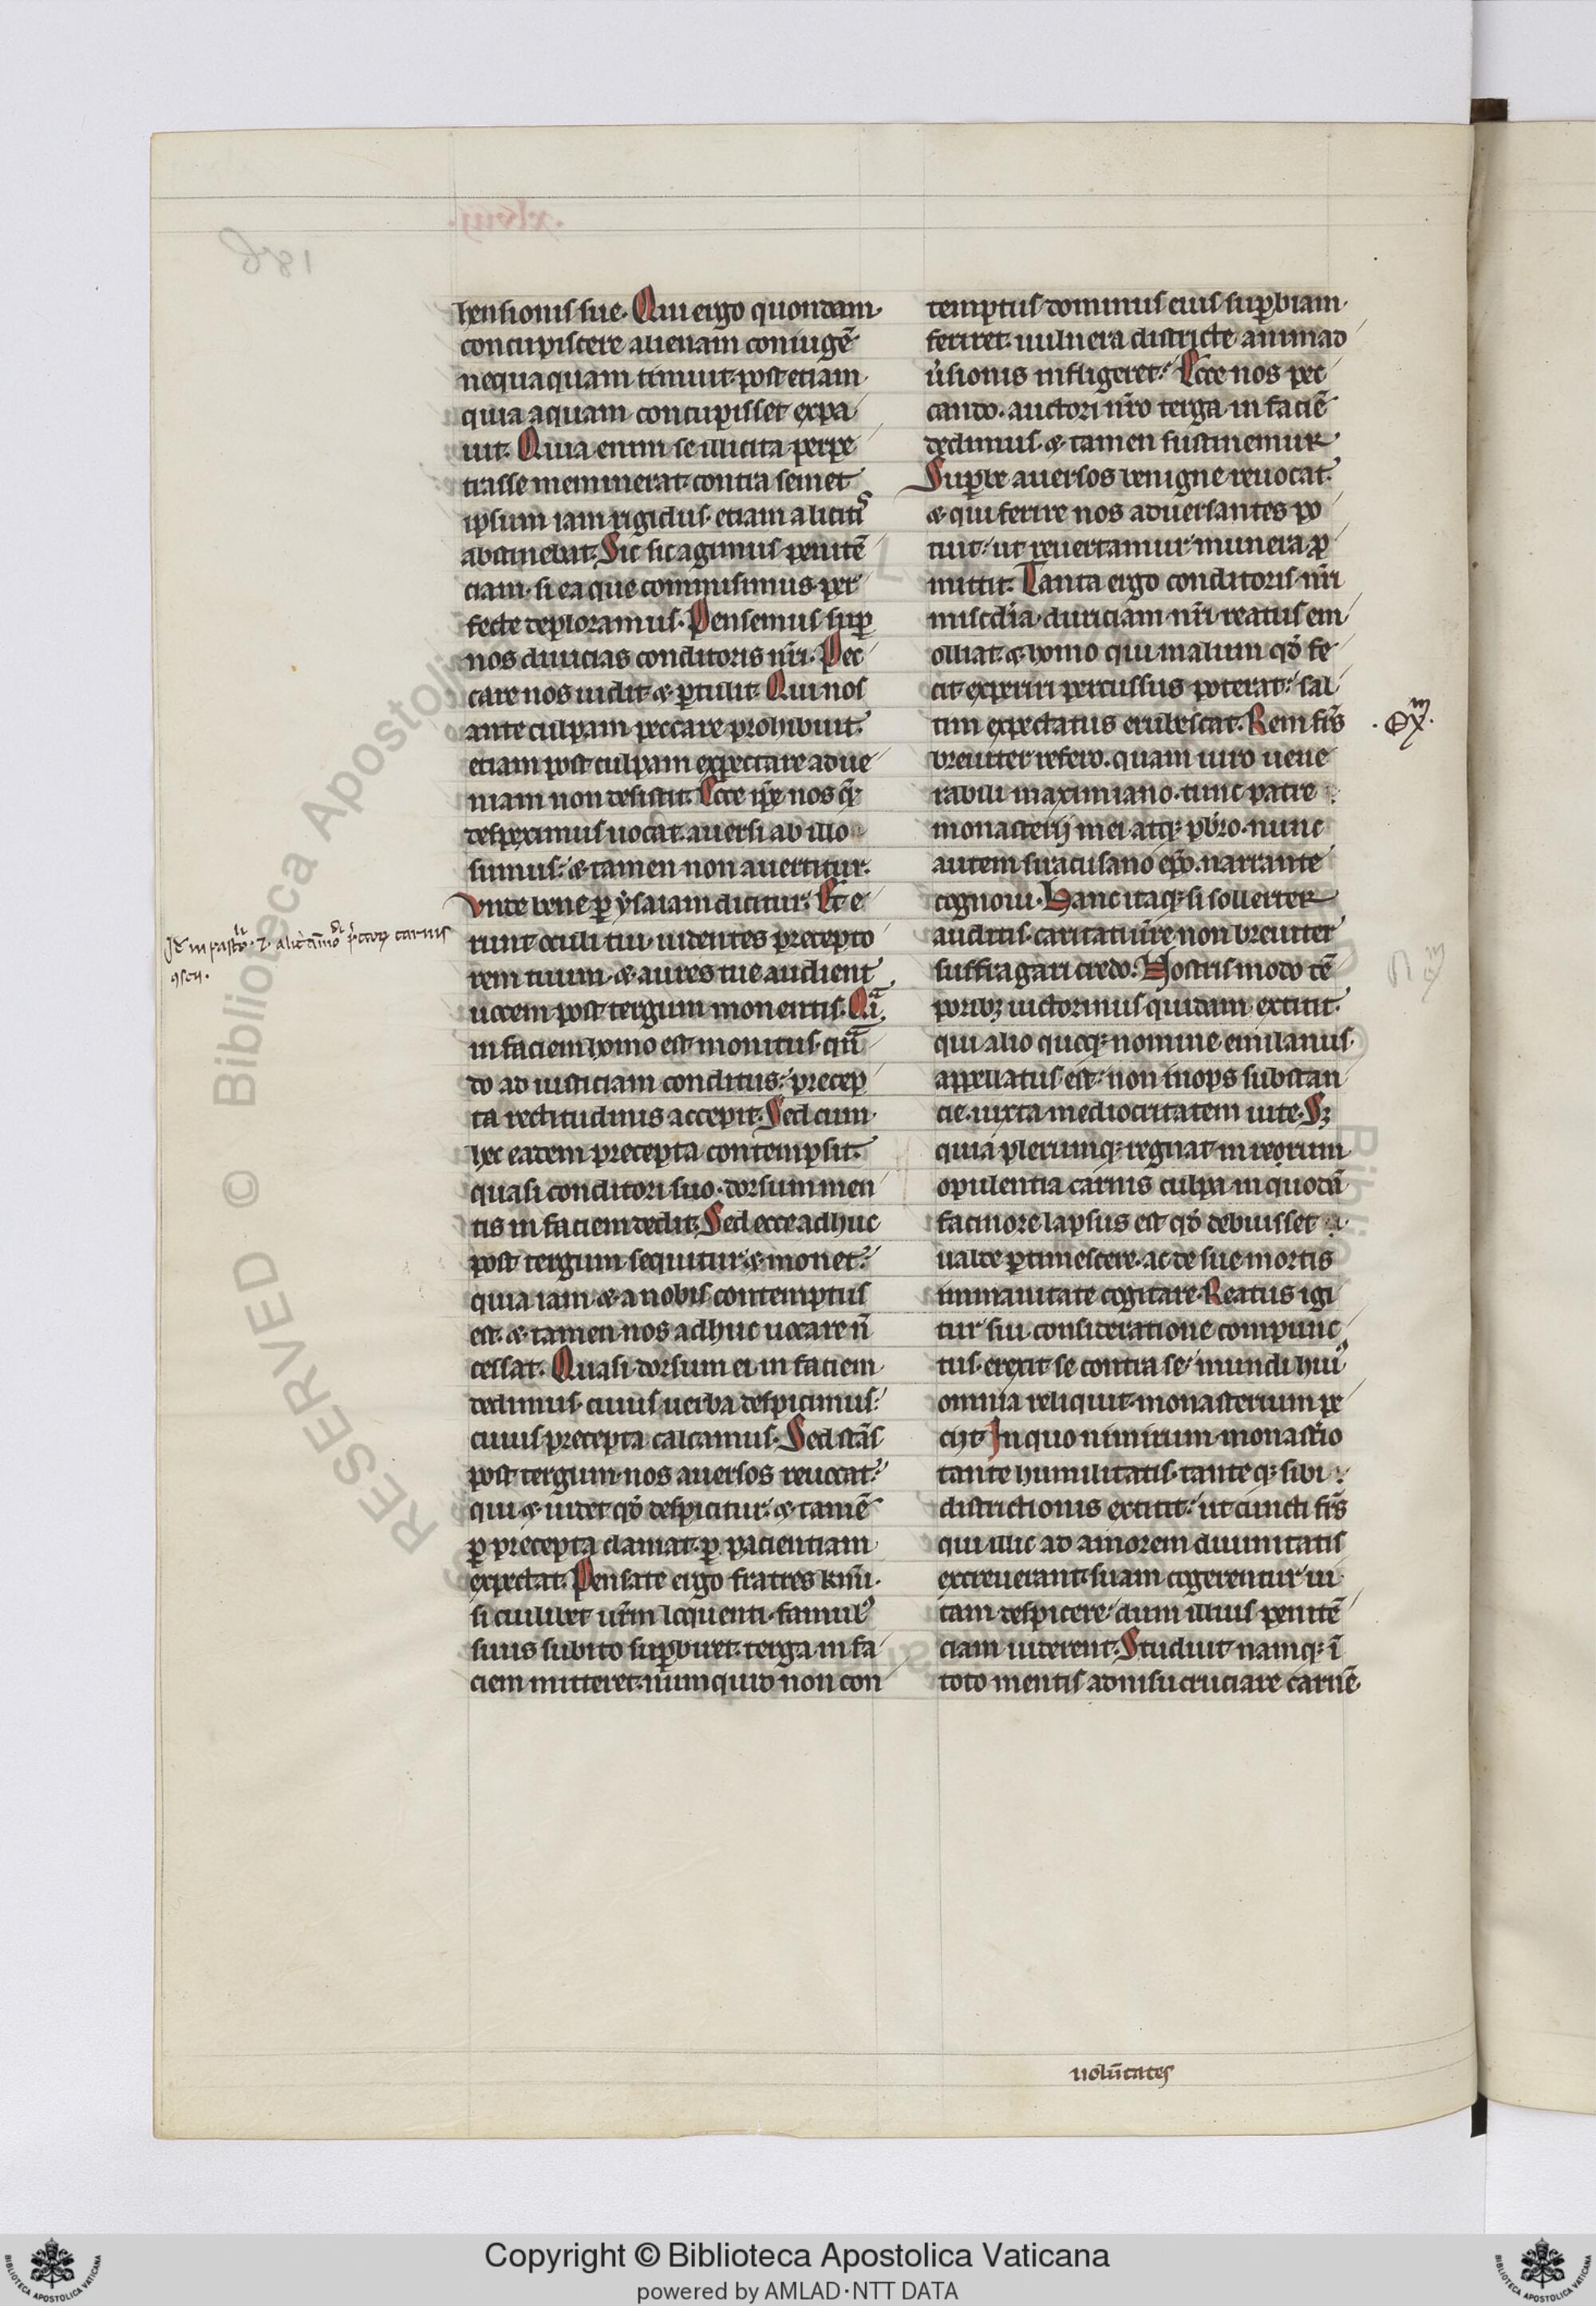 hensionis sue. Qui ergo quondam
concupiscere alienam coniugē
nequaquam timuit. post etiam
quia aquam concupisset expa
uit. Quia enim se illicita perpe
trasse meminerat. contra semet
ipsum iam rigidus. etiam a licitꝭ
abstinebat. Sic sic agimus penitē
ciam. si ea que commisimus. per
fecte deploramus. Pensemus suꝑ
nos diuicias conditoris nr̄i. Pec
care nos uidit ⁊ ꝑtulit. Qui nos
ante culpam peccare prohibuit.
etiam post culpam expectare ad ue
niam non desistit. Ecce ip̄e nos qᷓ
despeximus uocat. auersi ab illo
sumus. ⁊ tamen non auertitur.
Vnde bene ꝑ ysaiam dicitur. Et e
runt oculi tui. uidentes precepto
rem tuum. ⁊ aures tue audient
uocem post tergum monentis. Qͣi
in faciem homo est monitus. qn̄
do ad iusticiam conditus. precep
ta rectitudinis accepit. Sed cum
hec eadem precepta contempsit.
quasi conditori suo. dorsum men
tis in faciem dedit. Sed ecce adhuc
post tergum sequitur. ⁊ monet.
quia iam ⁊ a nobis contemptus
est. ⁊ tamen nos adhuc uocare n̄
cessat. Quasi dorsum ei in faciem
dedimus. cuius uerba despicimus.
cuius precepta calcamus. Sed stās
post tergum. nos auersos reuocat.
qui ⁊ uidet qd̓ despicitur. ⁊ tamē
ꝑ precepta clamat. ꝑ pacientiam
expectat. Pensate ergo fratres kmī.
si cuilibet ur̄m loquenti. famulꝰ
suus subito suꝑbiret. terga in fa
ciem mitteret. numquid non con
temptus dominus eius suꝑbiam
feriret. uulnera districte animad
ūsionis infligeret. Ecce nos pec
cando. auctori nr̄o terga in faciē
dedimus. ⁊ tamen sustinemur.
Suꝑbe auersos benigne reuocat.
⁊ qui ferire nos aduersantes po
tuit. ut reuertamur. munera ꝓ
mittit. Tanta ergo conditoris nr̄i
misc̄dia. duriciam nr̄i reatus em
olliat. ⁊ homo qui malum qd̓ fe
cit experiri percussus poterat. sal
tim expectatus erubescat. Rem fr̄s
breuiter refero. quam uiro uene
rabili maximiano. tunc patre
monasterij mei. atqꝫ pb̄ro. nunc
autem siracusano ep̄o. narrante
cognoui. Hanc itaqꝫ si sollerter
auditis. caritati ur̄e non breuiter
suffragari credo. Nostris modo tē
poribꝫ uictorinus quidam extitit.
qui alio quoqꝫ nomine emilianus
appellatus est. non inops substan
cie. iuxta mediocritatem uite. Sꝫ
quia plerumqꝫ regnat in reorum
opulentia carnis culpa. in quodā
facinore lapsus est. qd̓ debuisset
ualde ꝑtimescere. ac de sue mortis
inmanitate cogitare. Reatus igi
tur sui consideratione compunc
tus. erexit se contra se. mundi huiꝰ
omnia reliquit. monasterium pe
cijt. In quo nimirum monastr̄io
tante humilitatis. tante qꝫ sibi
districtionis extitit. ut cuncti fr̄s
qui illic ad amorem diuinitatis
excreuerant. suam cogerentur ui
tam despicere. dum illius penitē
ciam uiderent. Studuit namqꝫ ī
toto mentis adnisu cruciare carnē
uolūtates
Copyright © Biblioteca Apostolica Vaticana
powered by AMLAD·NTT DATA